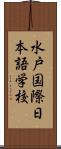 水戸国際日
本語学校